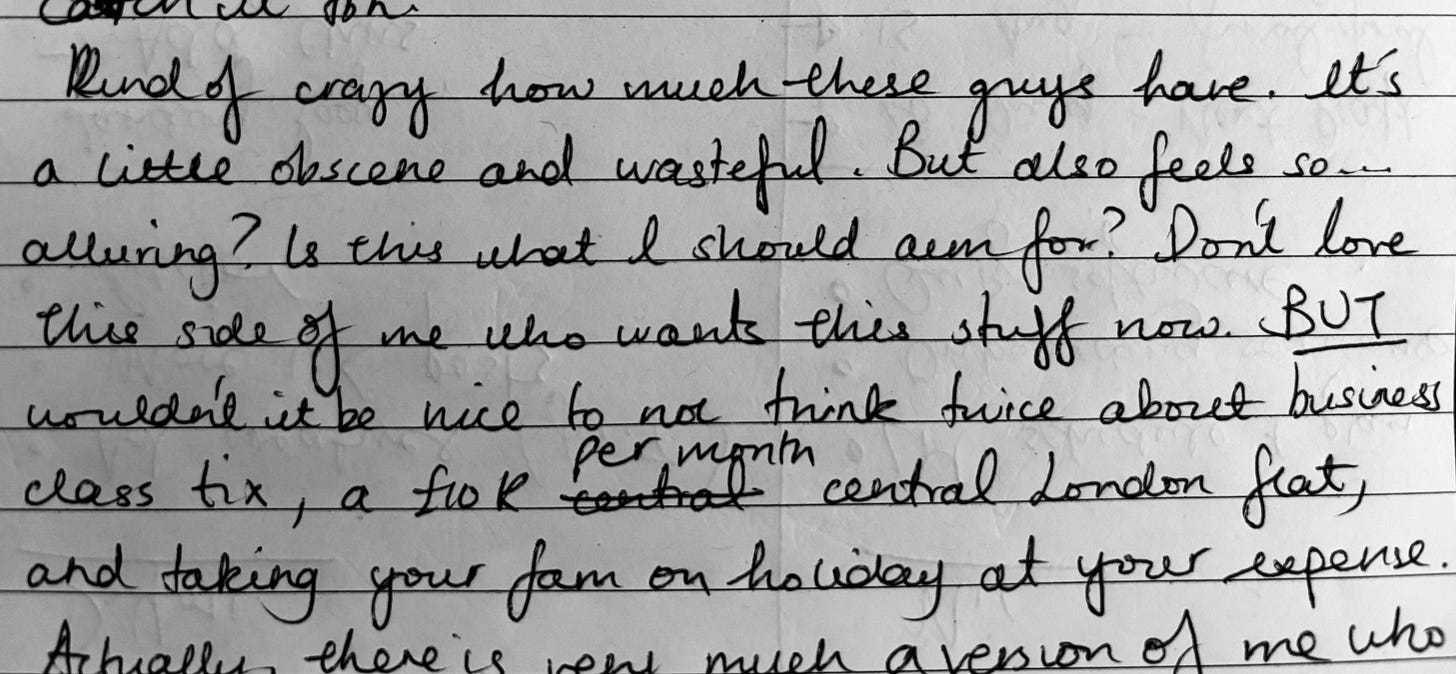 Kind of crazy how much these guys have. It's
a little obscene and wasteful. But also feels so...
alluring? Is this what I should aim for? Don't love
this side of me who wants this stuff now. BUT
wouldn't it be nice to not think twice about business
per month
class tix, a £10K central central London flat,
and taking your fam on holiday at your expense.
Actually, there is very much a version of me who